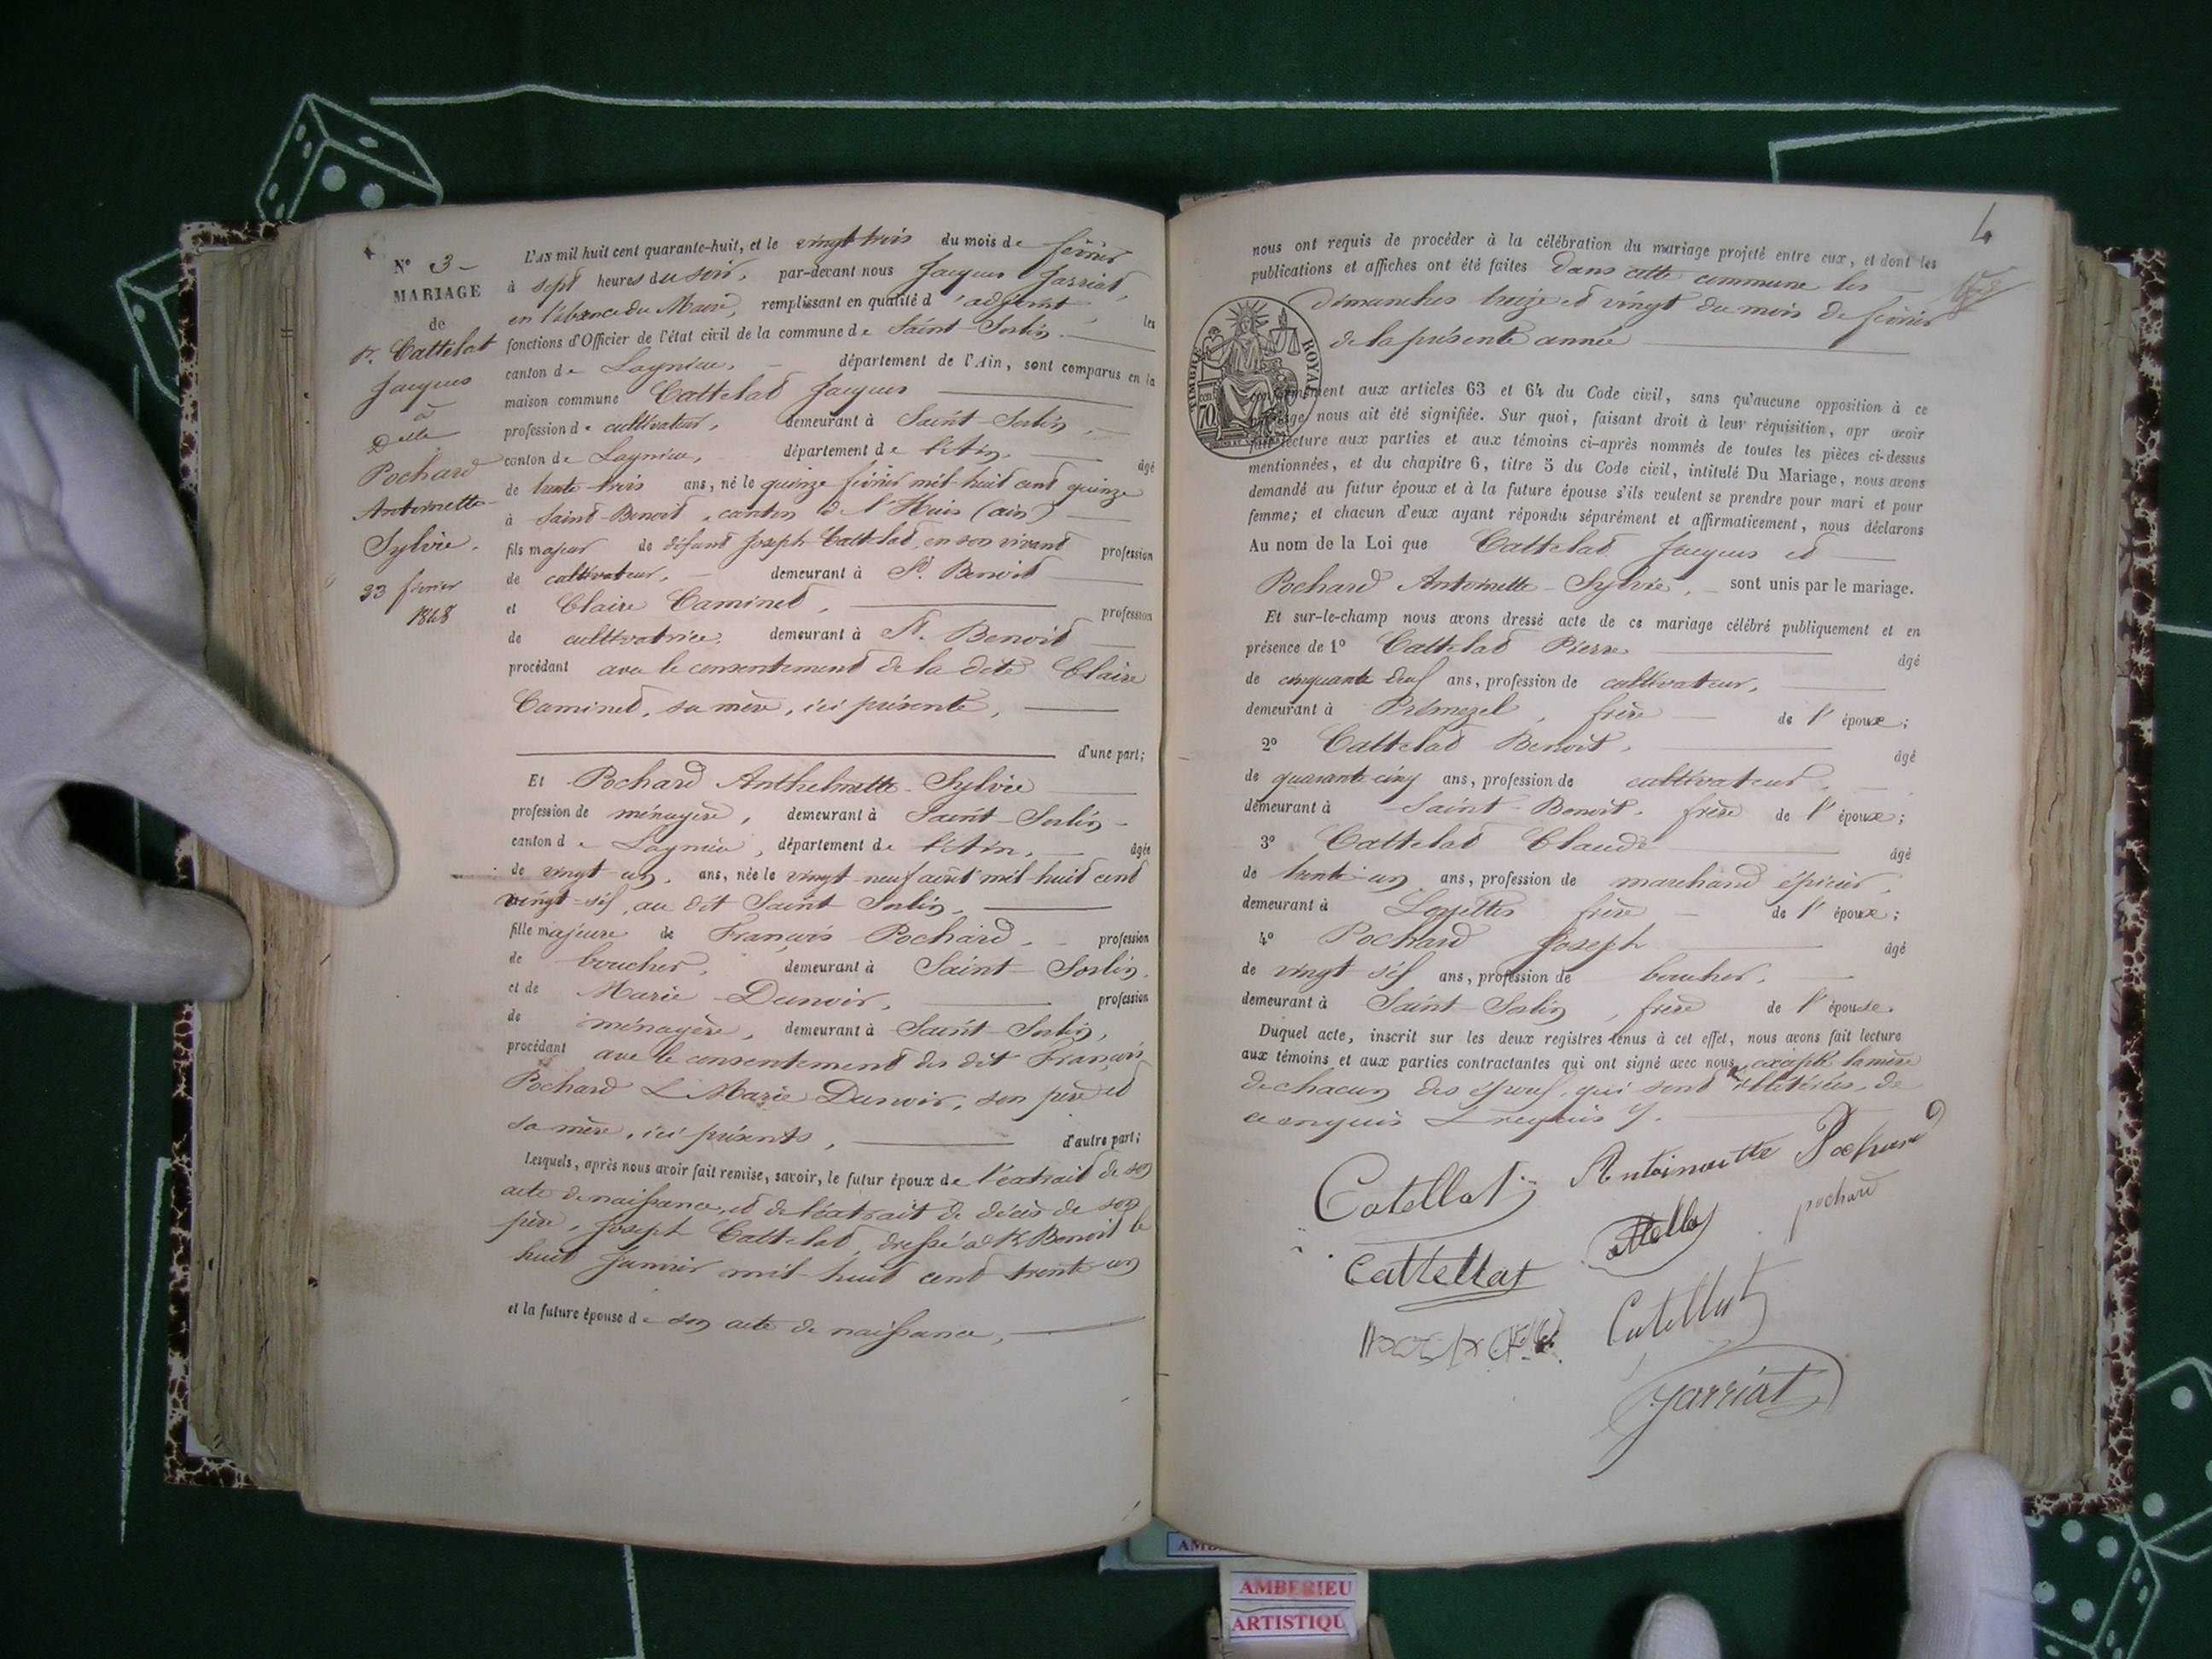 N° 3
MARIAGE
de
Sr. Cattelat
Jacques
à
Delle
Pochard
Antoinette
Sylvie.
23 février
1848
L'AN mil huit cent quarante-huit, et le vingt trois du mois de février
à sept heures du soir, par-devant nous Jacques Jarriat,
en l'absence du Maire, remplissant en qualité d'adjoint, les
fonctions d'Officier de l'état civil de la commune de Saint-Sorlin
canton de Lagnieu, département de l'Ain, sont comparus en la
maison commune Cattelat Jacques
profession de cultivateur, demeurant à Saint-Sorlin,
canton de Lagnieu, département de l'Ain. âgé
de trente trois ans, né le quinze février mil huit cent quinze
à Saint-Benoit, canton de l'Huis (ain)
fils majeur de défunt Joseph Cattelat, en son vivant profession
de cultivateur, demeurant à St. Benoit
et Claire Caminet, profession
de cultivatrice, demeurant à St. Benoit
procédant avec le consentement de la dite Claire
Caminet, sa mère, ici présente,
d'une part;
Et Pochard Anthelmette-Sylvie
profession de ménagère, demeurant à Saint-Sorlin
canton de Lagnieu, département de l'Ain, âgée
de vingt-un, ans, née le vingt-neuf août mil huit cent
vingt-six, au dit Saint Sorlin,
fille majeure de François Pochard, profession
de boucher, demeurant à Saint-Sorlin,
et de Marie Dunoir, profession
de ménagère, demeurant à Saint-Sorlin,
procédant avec le consentement des dit François
Pochard & Marie Dunoir, son père et
sa mère, ici présents, d'autre part;
Lesquels, après nous avoir fait remise, savoir, le futur époux de l'extrait de son
acte de naissance, et de l'extrait de décès de son
père, Joseph Cattelat, dressé à St Benoit le
huit Janvier mil huit cent trente un
et la future épouse de son acte de naissance,
4
nous ont requis de procéder à la célébration du mariage projeté entre eux, et dont les
publications et affiches ont été faites dans cette commune les
dimanches treize et vingt du mois de février
de la présente année
TIMBRE ROYAL
70
conformément aux articles 63 et 64 du Code civil, sans qu'aucune opposition à ce
mariage nous ait été signifiée. Sur quoi, faisant droit à leur réquisition, apr avoir
fait lecture aux parties et aux témoins ci-après nommés de toutes les pièces ci-dessus
mentionnées, et du chapitre 6, titre 5 du Code civil, intitulé Du Mariage, nous avons
demandé au futur époux et à la future épouse s'ils veulent se prendre pour mari et pour
femme; et chacun d'eux ayant répondu séparément et affirmativement, nous déclarons
Au nom de la Loi que Cattelat Jacques et
Pochard Antoinette-Sylvie, sont unis par le mariage.
Et sur-le-champ nous avons dressé acte de ce mariage célébré publiquement et en
présence de 1° Cattelat Pierre âgé
de cinquante deux ans, profession de cultivateur,
demeurant à, frère de l'époux;
2° Cattelat Benoit, âgé
de quarante cinq ans, profession de cultivateur,
demeurant à Saint-Benoit, frère de l'époux;
3° Cattelat Claude âgé
de trente-un ans, profession de marchand épicier,
demeurant à Loyettes frère de l'époux;
4° Pochard Joseph âgé
de vingt six ans, profession de boucher,
demeurant à Saint-Sorlin, frère de l'épouse.
Duquel acte, inscrit sur les deux registres tenus à cet effet, nous avons fait lecture
aux témoins et aux parties contractantes qui ont signé avec nous, excepté la mère
de chacun des époux, qui sont illetérées, de
ce enquis & requis
Catellat Antoinette Pochard
pochard
Cattellat
Catellat
Jarriat
AMBERIEU
ARTISTIQU